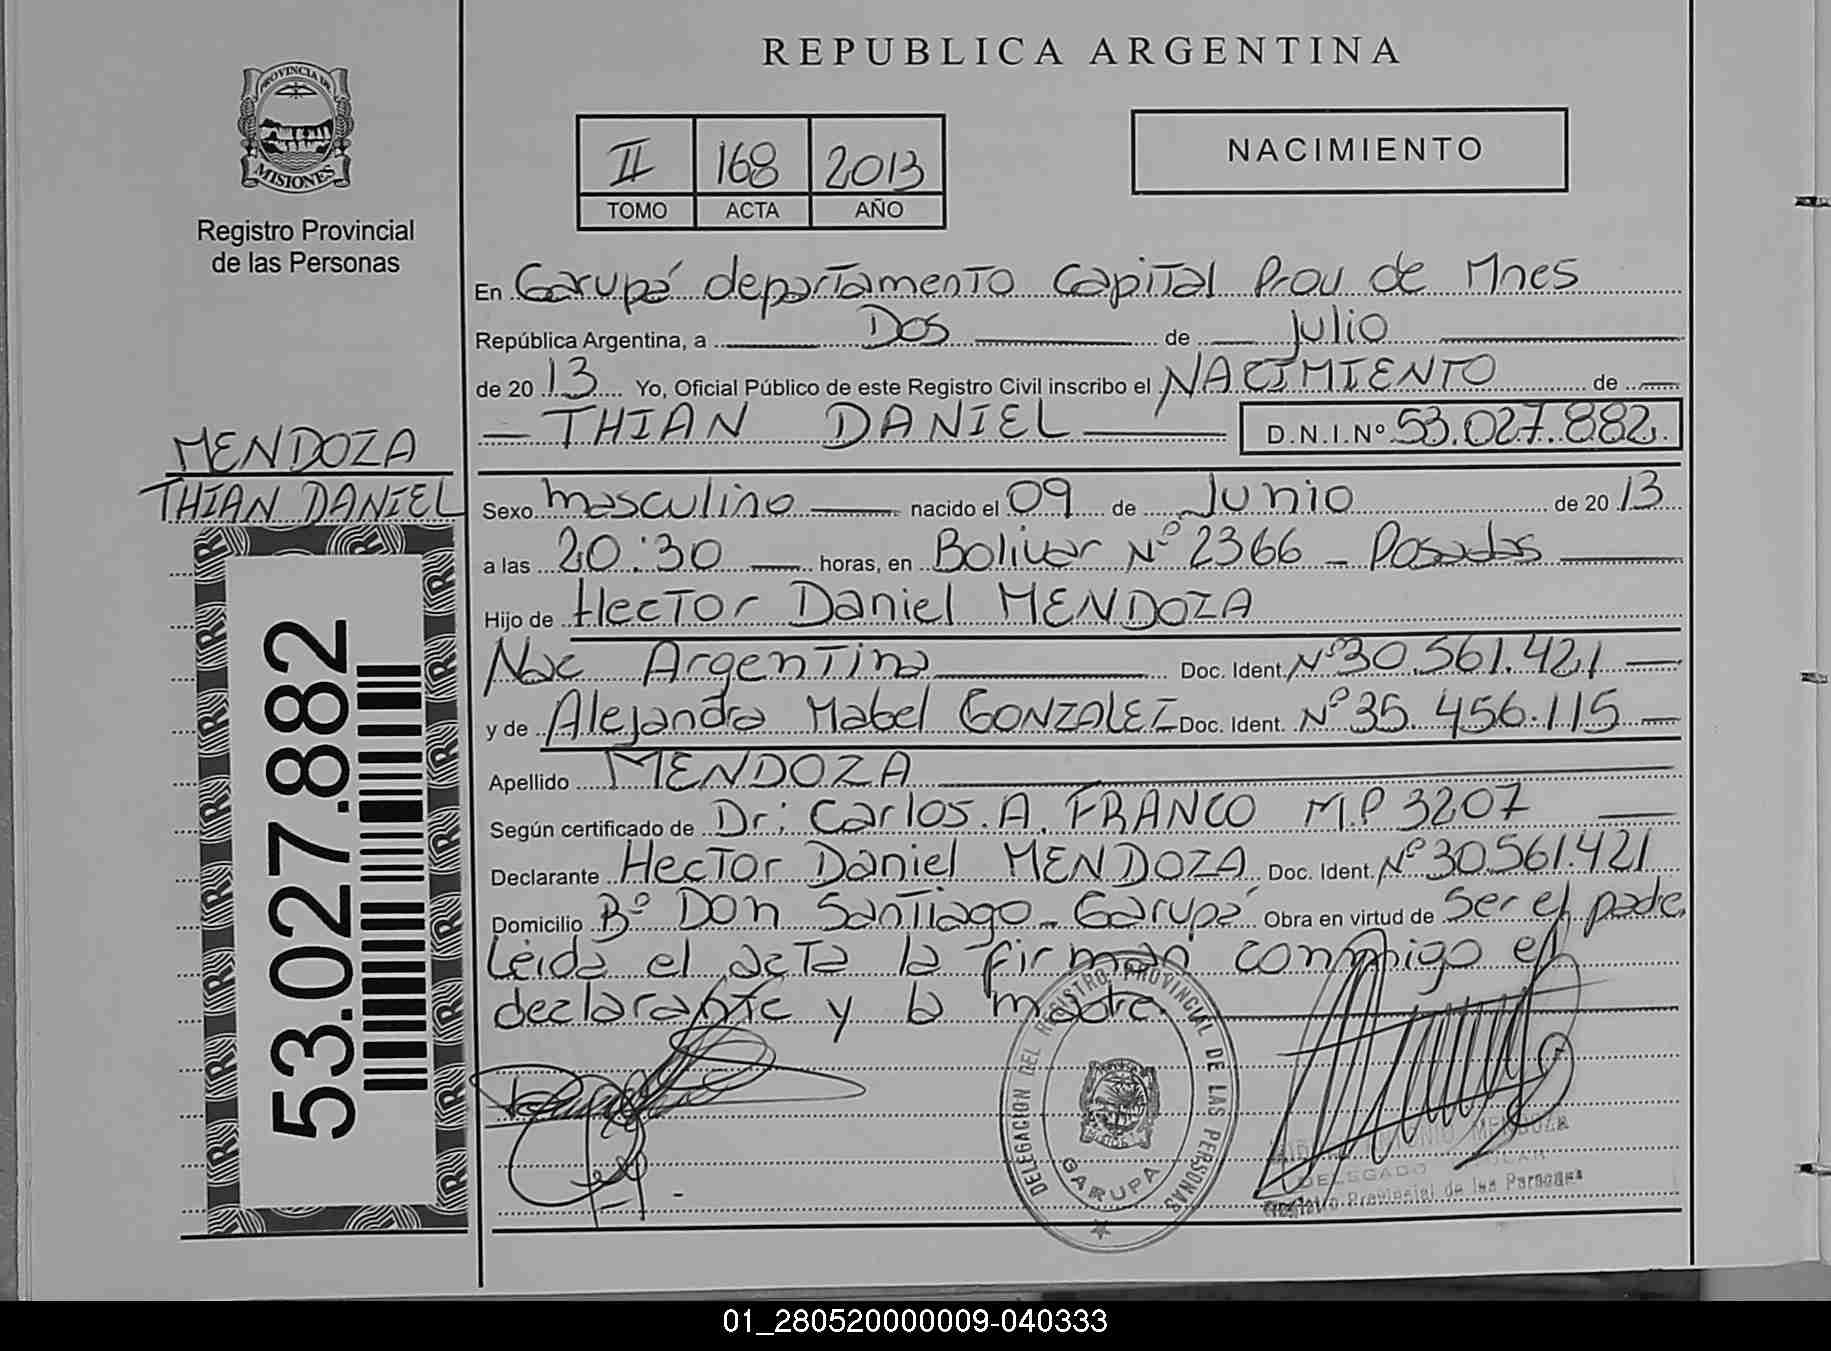 REPUBLICA ARGENTINA
PROVINCIA DE
MISIONES
Registro Provincial
de las Personas
II 168 2013
TOMO ACTA AÑO
NACIMIENTO
En Garupá departamento Capital Prov de Mnes
República Argentina, a Dos de julio
de 20 13 Yo, Oficial Público de este Registro Civil inscribo el NACIMIENTO de
THIAN DANIEL D.N.I.Nº 53.027.882.
MENDOZA
THIAN DANIEL
53.027.882
Sexo masculino nacido el 09 de Junio de 20 13
a las 20:30 horas, en Bolivar Nº 2366 - Posadas
Hijo de Hector Daniel MENDOZA
Nac Argentina Doc. Ident. Nº 30.561.421
y de Alejandra Mabel GONZALEZ Doc. Ident. Nº 35.456.115
Apellido MENDOZA
Según certificado de Dr: Carlos.A. FRANCO M.P 3207
Declarante Hector Daniel MENDOZA Doc. Ident. Nº 30.561.421
Domicilio Bº Don Santiago - Garupá Obra en virtud de ser el padre.
Leida el acta la firman conmigo el
declarante y la madre.
DELEGACION DEL REGISTRO PROVINCIAL DE LAS PERSONAS
GARUPA
MENDOZA
DELEGADO
Registro Provincial de las Personas
01_280520000009-040333